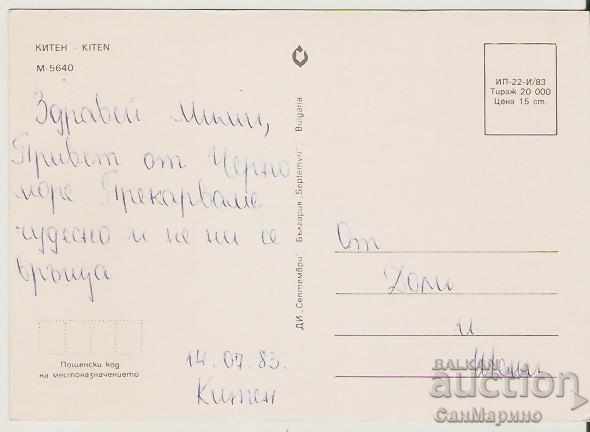 КИТЕН - KITEN
М-5640
Здравей Мими,
Привет от Черно
море Прекарваме
чудесно и не ни се
връща
14.07.83.
Китен
Пощенски код
на местоназначението
ДИ „Септември" България „Septemvri" Bulgaria
ИП-22-И/83
Тираж 20 000
Цена 15 ст.
От
и
БАЛКАН
auction
СанМарино